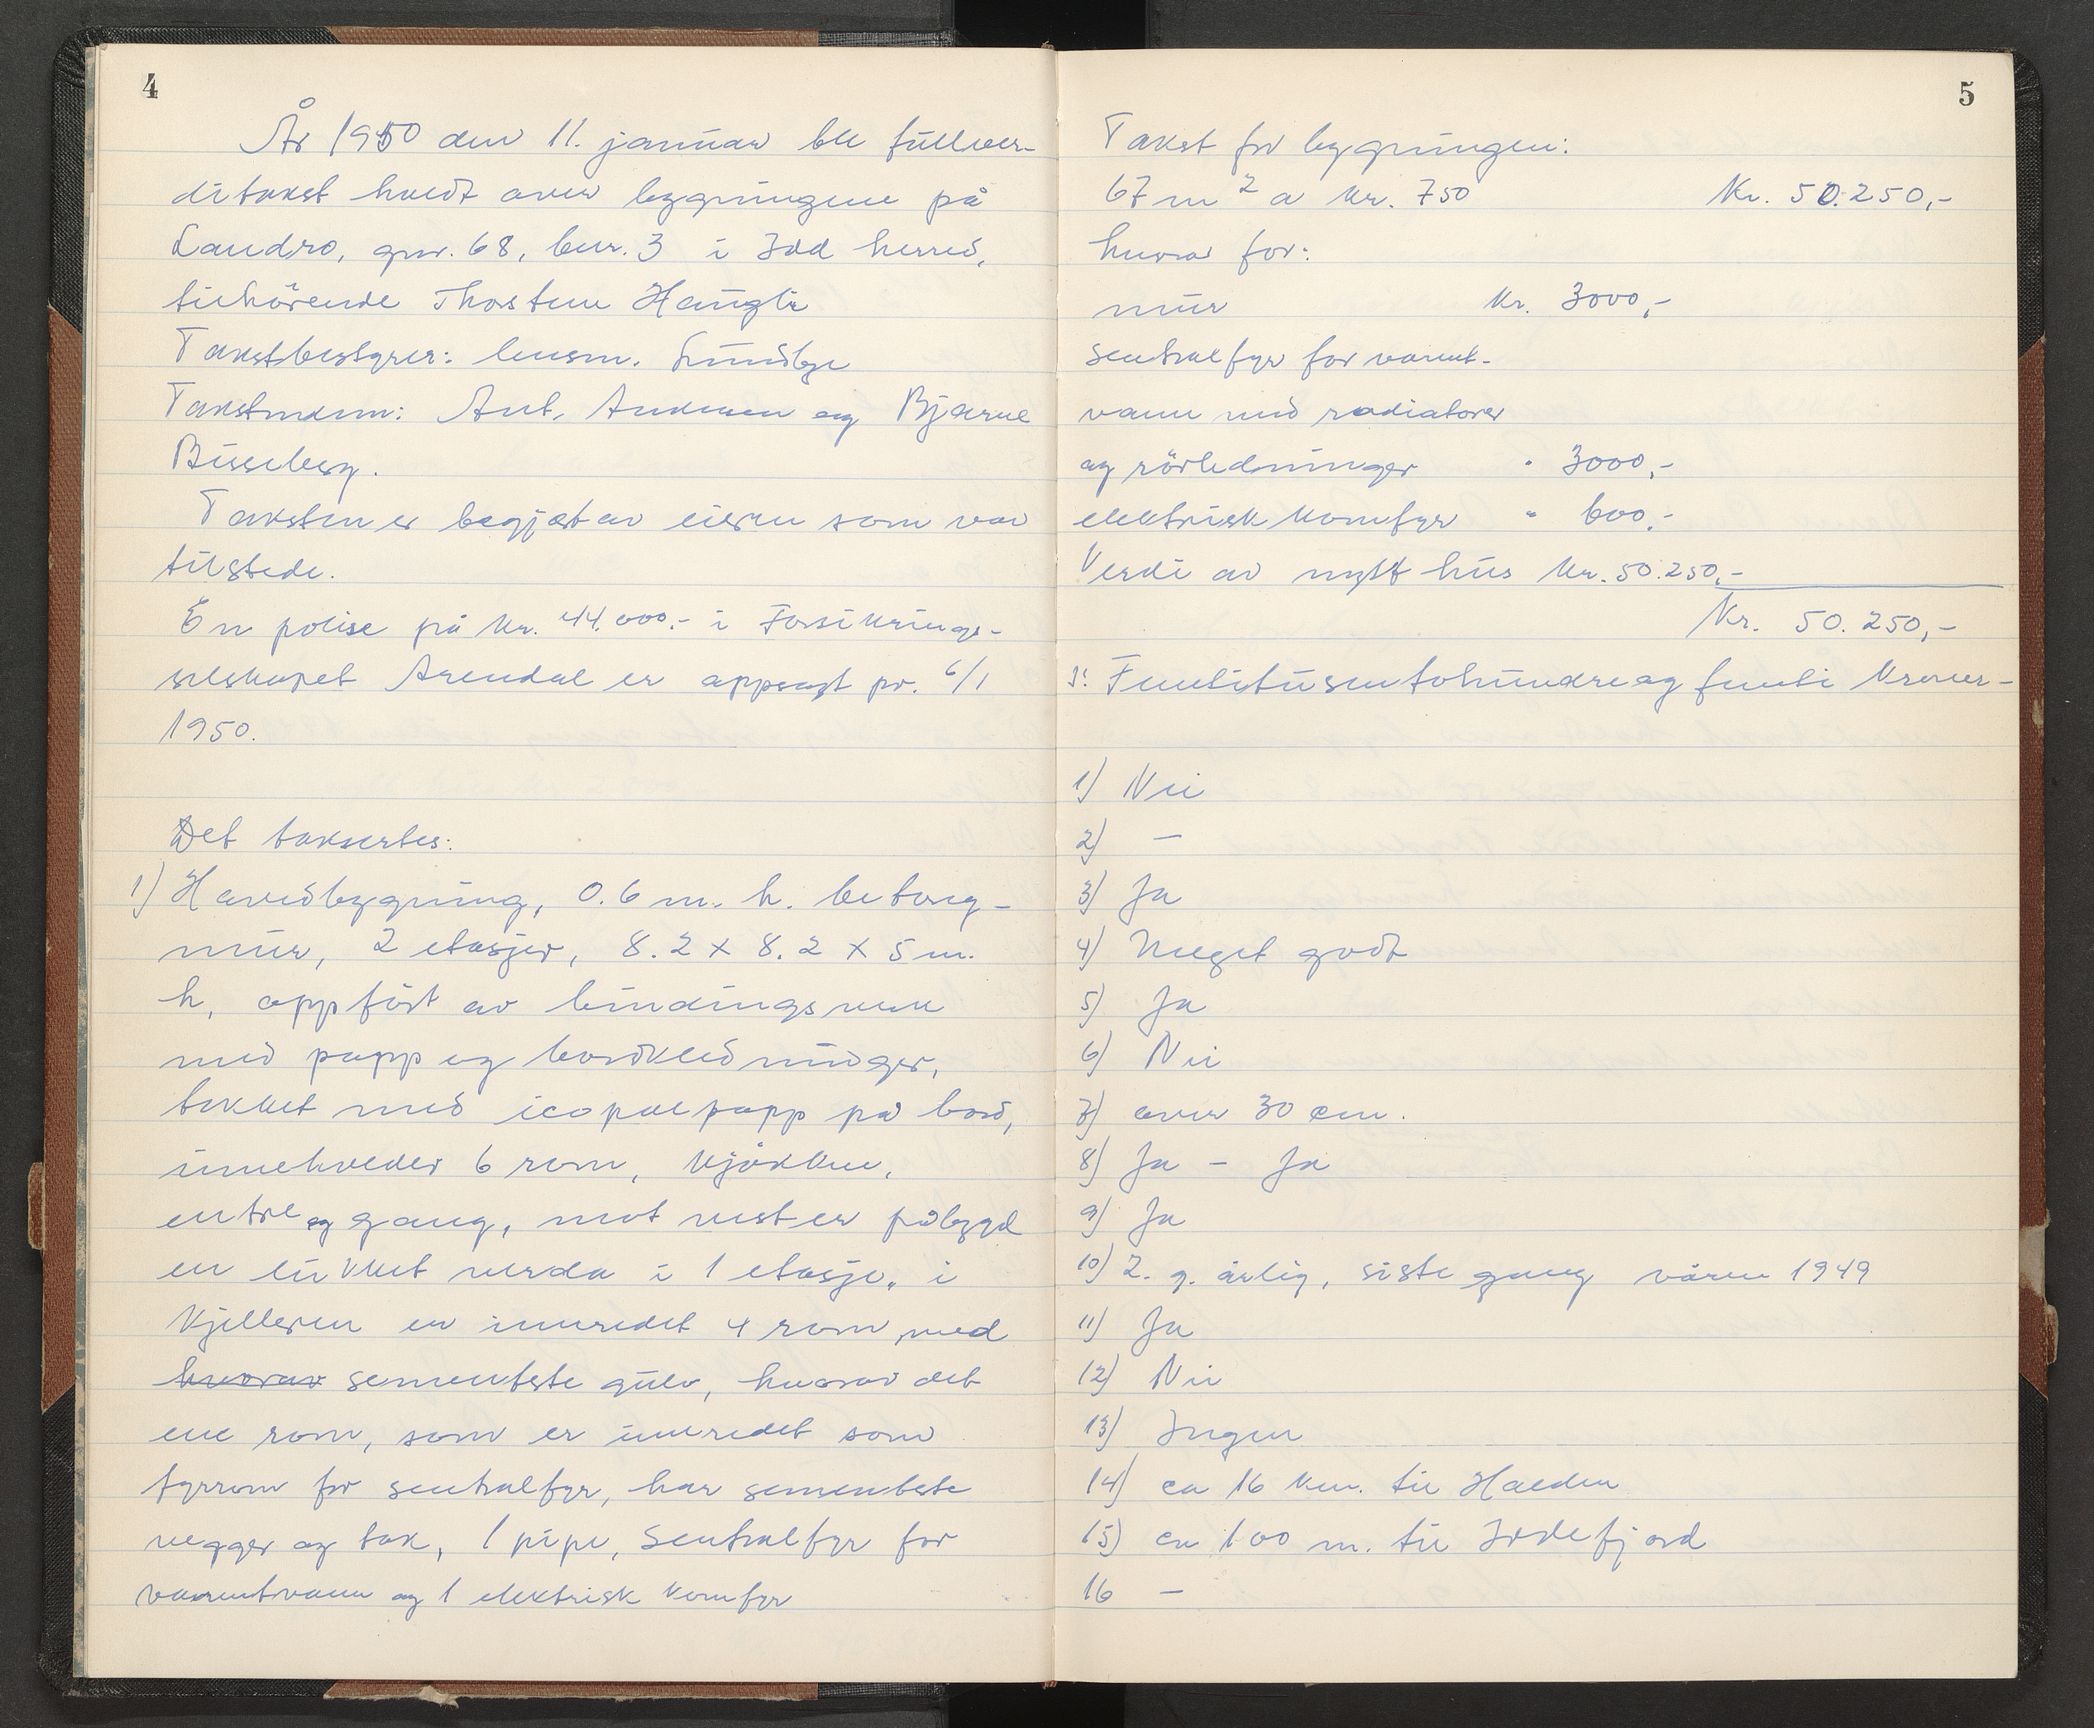 4
År 1950 den 11. januar ble fullver-
ditakst holdt over bygningene på
Landro, gnr. 68, bnr. 3 i Idd herred,
tilhörende Thorstein Haugli
Takstbestyrer: lensm. Lundby
Takstmenn: Ant. Andersen og Bjarne
Buseberg.
Taksten er begjært av eieren som var
tilstede.
En polise på kr. 44.000.- i Forsikrings-
selskapet Arendal er oppsagt pr. 6/1
1950.
Det taksertes:
1) Hovedbygning, 0.6 m. h. betong-
mur, 2 etasjer, 8.2 x 8.2 x 5 m.
h, oppfört av bindingsverk
med papp og bordkledninger,
tekket med icopalpapp på bord,
inneholder 6 rom, kjökken,
entre og gang, mot vest er påbygd
en lukket veranda i 1 etasje, i
kjelleren er innredet 4 rom med
hvorav sementste gulv, hvorav det
ene rom, som er innredet som
fyrrom for sentralfyr, har sementste
vegger og tak, 1 pipe, sentralfyr for
varmtvann og 1 elektrisk komfyr
5
Takst for bygningen:
67 m2 a kr. 750 Kr. 50.250,-
hvorav for:
mur kr. 3000,-
sentralfyr for varmt-
vann med radiatorer
og rörledninger " 3000,-
elektrisk komfyr " 600.-
Verdi av nytt hus kr. 50.250,-
Kr. 50.250,-
Femtitusentohundreogfemti kroner-
1) Nei
2) —
3) Ja
4) Meget godt
5) Ja
6) Nei
7) over 30 cm.
8) Ja - Ja
9) Ja
10) 2. g. årlig, siste gang våren 1949
11) Ja
12) Nei
13) Ingen
14) ca 16 km. til Halden
15) ca 100 m. til Iddefjord
16 —